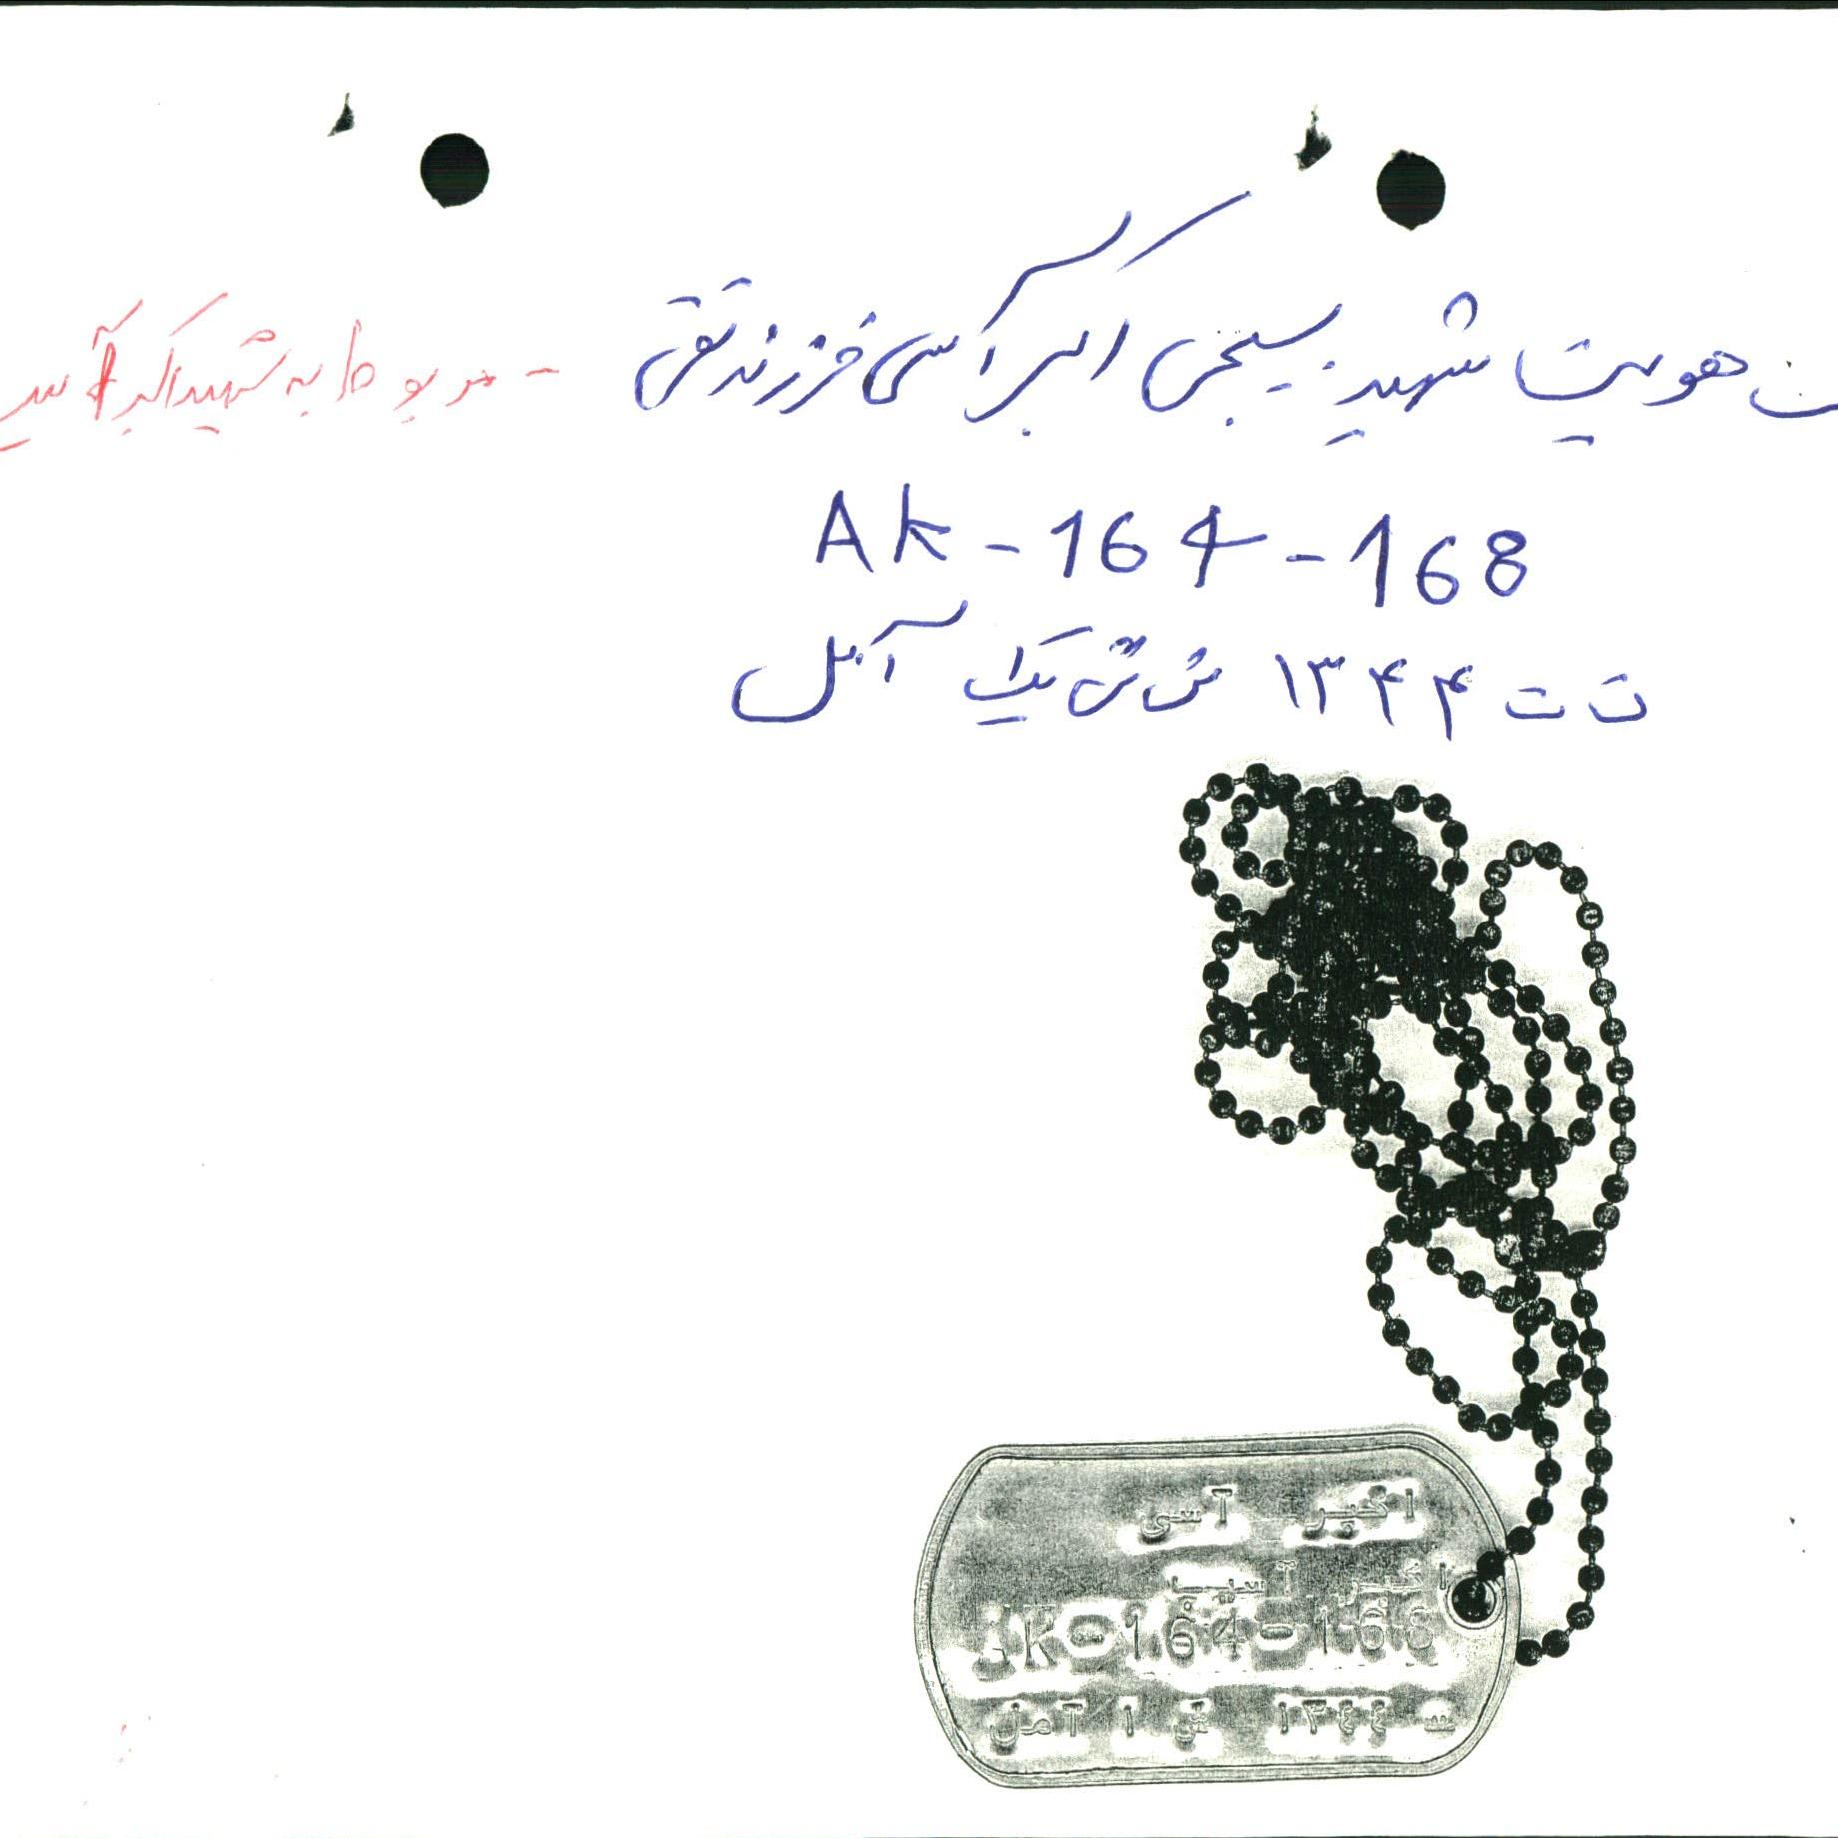 هویت شهید بسیجی اکبر آسی فرزند تقی - مربوط به شهید اکبر آسی
AK-164-168
ت ت ۱۳۴۴ ش ش یک آمل
اکبر آسی
اکبر
AK-164-166
ت ۱۳۴۴ ش ۱ آمل